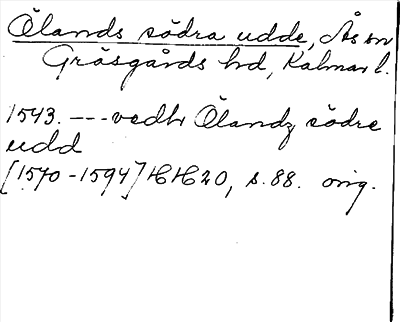 Ölands södra udde, Ås sn
Gräsgårds hd, Kalmar l.
1543. --- vedh Ölandz södre
udd
[1570-1594] HH20, s. 88. orig.